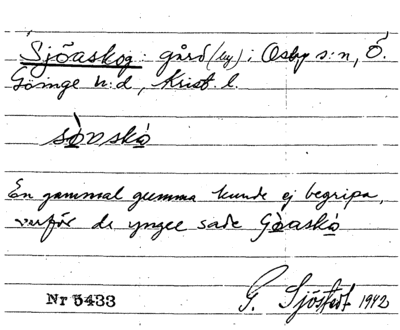 Sjöaskog: gård (by) i Osby s:n, Ö.
Göinge h:d, Krist. l.
sòvskó
En gammal gumma kunde ej begripa,
varför de yngre sade Gòaskó
Nr 5433 G. Sjöstedt 1942